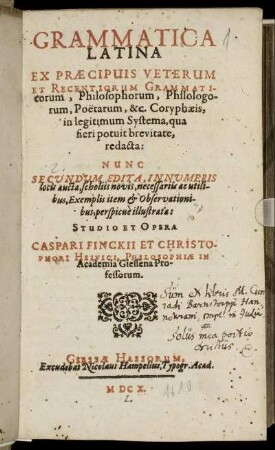 GRAMMATICA 1
LATINA
EX PRÆCIPUIS VETERUM
ET RECENTIORUM GRAMMATI-
corum, Philosophorum, Philologo-
rum, Poëtarum, &c. Coryphæis,
in legitimum Systema, qua
fieri potuit brevitate,
redacta:
NUNC
SECUNDUM EDITA, INNUMERIS
locis aucta, scholiis novis, necessariis ac utili-
bus, Exemplis item & Observationi-
bus, perspicuè illustrata:
STUDIO ET OPERA
CASPARI FINCKII ET CHRISTO-
PHORI HELVICI, PHILOSOPHIÆ IN
Academia Giessena Pro-
fessorum.
Sum ex libris M. Con-
radi
Jesus mea portio
GIESSÆ HASSORUM,
Excudebat Nicolaus Hampelius, Typogr. Acad.
MDCX. 1610
L.